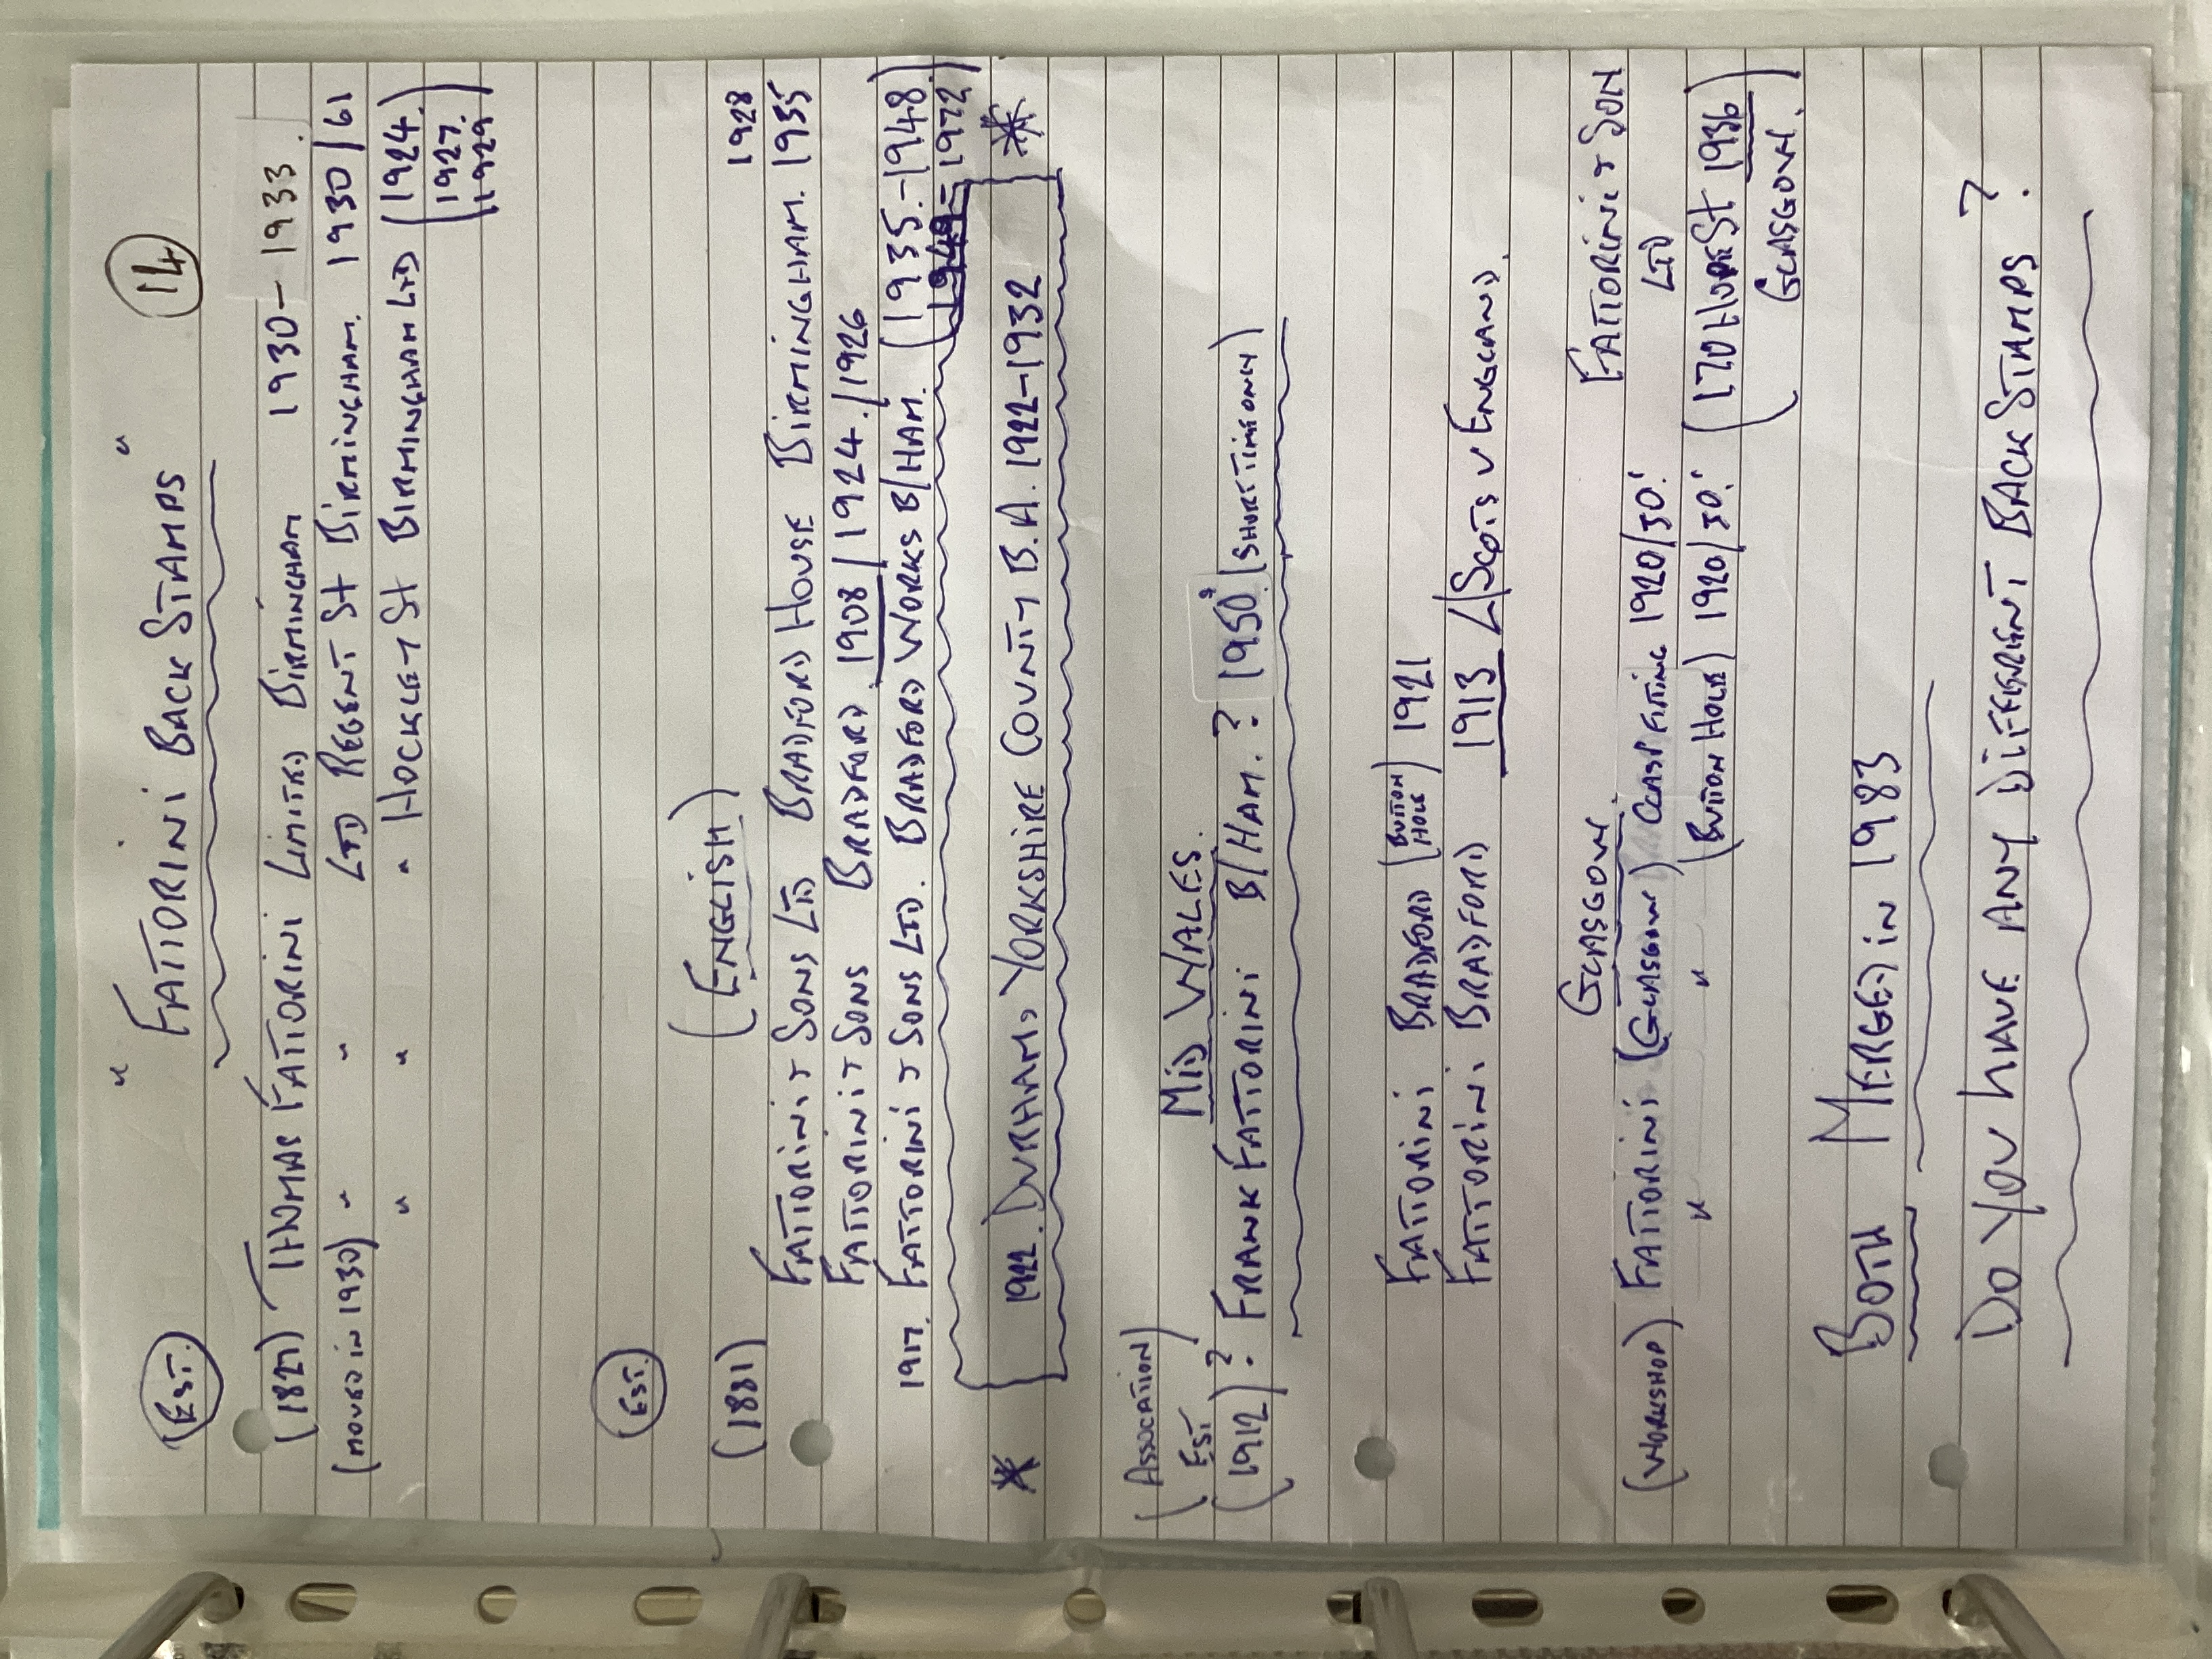 14
" FATTORINI BACK STAMPS "
EST.
(1827) THOMAS FATTORINI LIMITED BIRMINGHAM 1930-1933.
(MOVED IN 1930) " " LTD REGENT St BIRMINGHAM. 1930/61
" " " HOCKLEY St BIRMINGHAM LTD (1924.)
(1927.
1929)
EST.
(ENGLISH)
(1881) 1928
FATTORINI & SONS LTD BRADFORD HOUSE BIRMINGHAM. 1935
FATTORINI & SONS BRADFORD. 1908/1924./1926
1917. FATTORINI & SONS LTD. BRADFORD WORKS B/HAM. (1935.-1948)
1972)
* 1922. DURHAM, YORKSHIRE COUNTY B.A. 1922-1932 *
(ASSOCATION) MID WALES.
EST
(1912)? FRANK FATTORINI B/HAM. ? 1950s (SHORT TIME ONLY)
FATTORINI BRADFORD (BUTTON HOLE) 1921
FATTORINI BRADFORD 1913 (SCOTS V ENGLAND.
GLASGOW. FATTORINI & SON
(WORKSHOP) FATTORINI (GLASGOW) CLASP FITTING 1920/30! LTD
" " (BUTTON HOLE) 1920/30! (170 HOPE St 1936)
GLASGOW.
BOTH MERGED IN 1983
DO YOU HAVE ANY DIFFERENT BACK STAMPS ?